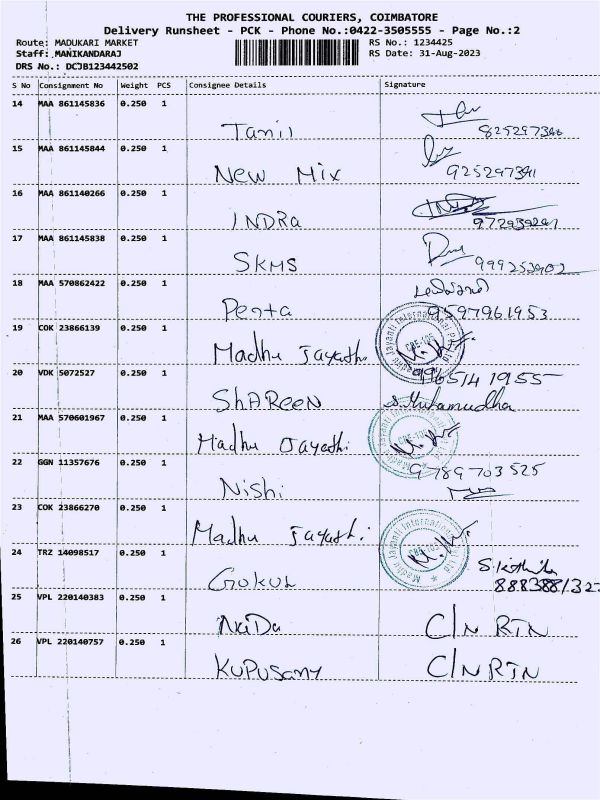 THE PROFESSIONAL COURIERS, COIMBATORE
Delivery Runsheet - PCK - Phone No.:0422-3505555 - Page No.:2
Route: MADUKARI MARKET RS No.: 1234425
Staff: MANIKANDARAJ RS Date: 31-Aug-2023
DRS No.: DCJB123442502
S No Consignment No Weight PCS Consignee Details Signature
14 MAA 861145836 0.250 1
Tamil 825297346
15 MAA 861145844 0.250 1
New Mix 925297341
16 MAA 861140266 0.250 1
INDRa
17 MAA 861145838 0.250 1
SKMS
18 MAA 570862422 0.250 1
Penta 9597961953
19 COK 23866139 0.250 1
Madhu Jayanthi
20 VDK 5072527 0.250 1 9965141955
ShAReeN S. Mutamudha
21 MAA 570601967 0.250 1
Madhu Jayathi
22 GGN 11357676 0.250 1 9789703525
Nishi
23 COK 23866270 0.250 1
Madhu Jayathi
24 TRZ 14098517 0.250 1
Gokul
25 VPL 220140383 0.250 1
NaiDa C/N RTN
26 VPL 220140757 0.250 1
KUPUSamy C/N RTN